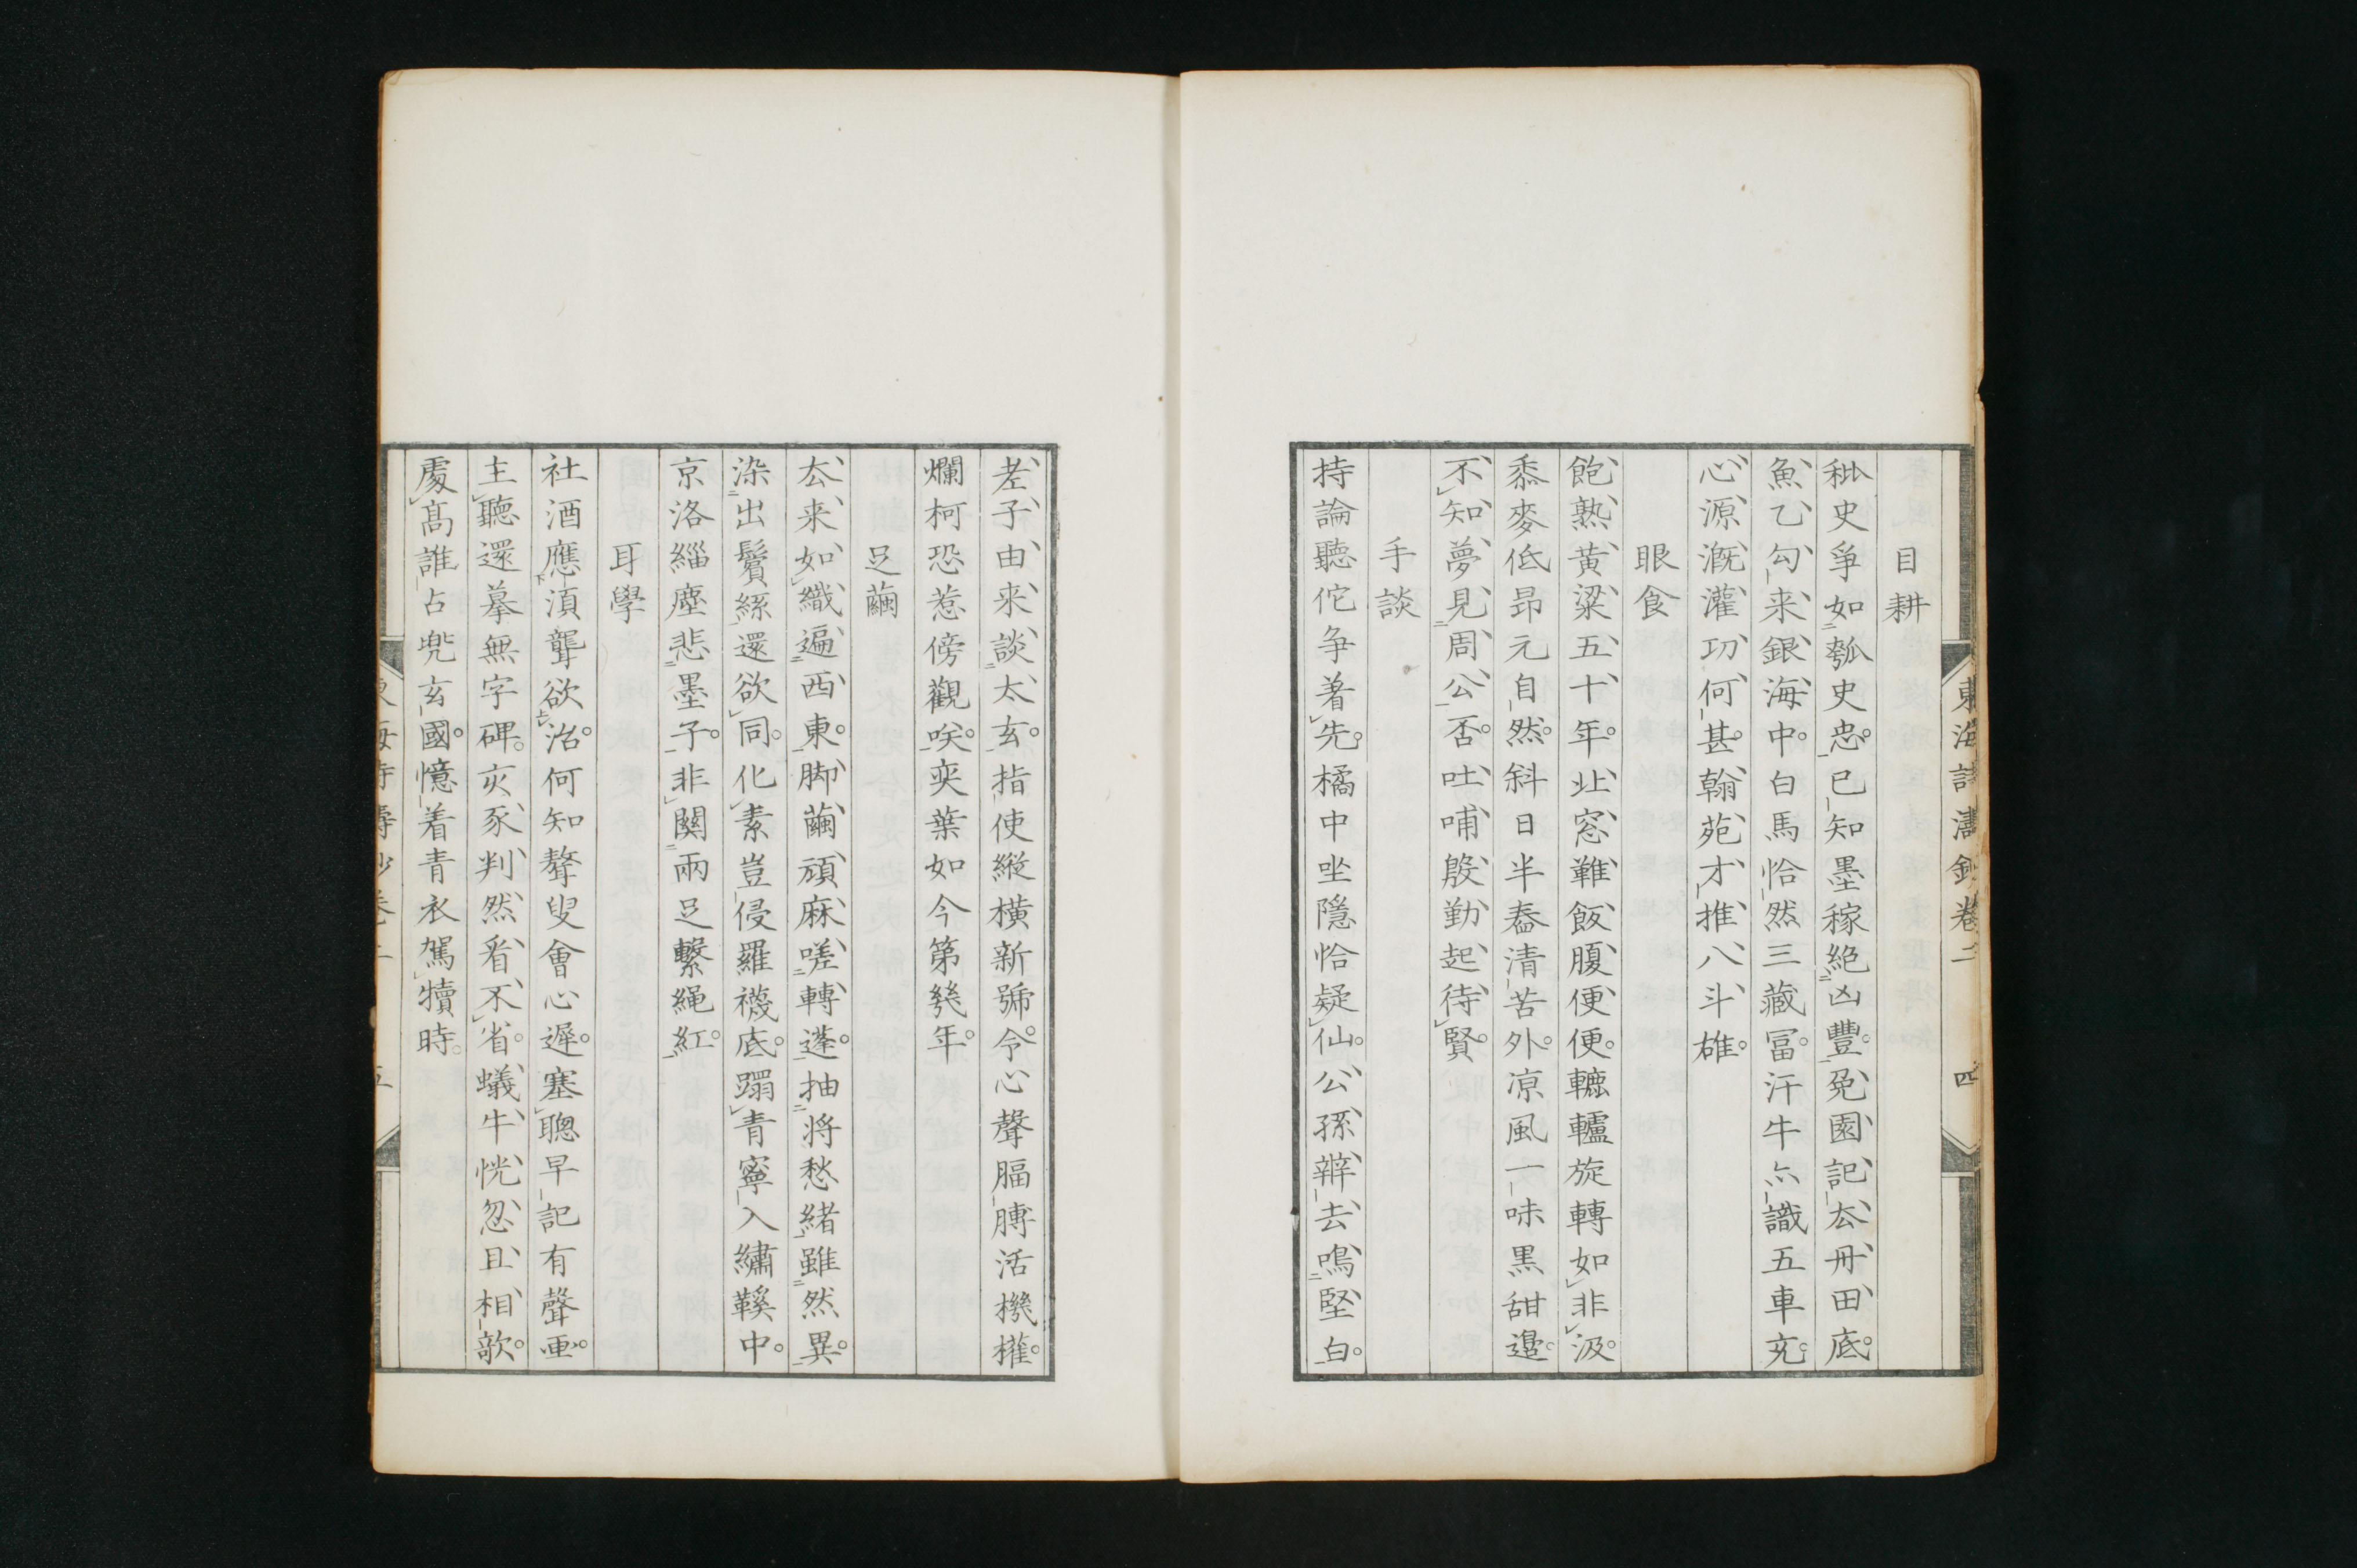 東海詩濤鈔卷二 四
目耕
秇史爭如瓠史忠已知墨稼絕凶豐兔園記厺冊田底
魚乙勾来銀海中白馬恰然三藏冨汗牛亦識五車充
心源漑灌功何甚翰苑才推八斗雄
眼食
飽熟黃粱五十年北窓難飯腹便便轆轤旋轉如非汲
黍麥低昂元自然斜日半舂清苦外凉風一味黒甜邉
不知夢見周公否吐哺殷勤起待賢
手談
持論聽佗争着先橘中坐隱恰疑仙公孫辯去鳴堅白
老子由来談太玄指使縱橫新號令心聲腷膊活機權
爛柯恐惹傍觀咲奕葉如今第幾年
足繭
厺来如織遍西東脚繭頑麻嗟轉蓬抽将愁緒雖然異
染出鬢絲還欲同化素豈侵羅襪底躅青寧入繡鞵中
京洛緇塵悲墨子非關兩足繫繩紅
耳學
社酒應湏聾欲治何知聱叟會心遲塞聰早記有聲画
主聽還摹無字碑亥豕判然看不省蟻牛恍忽且相歆
處髙誰占兜玄國憶着青衣駕犢時
五